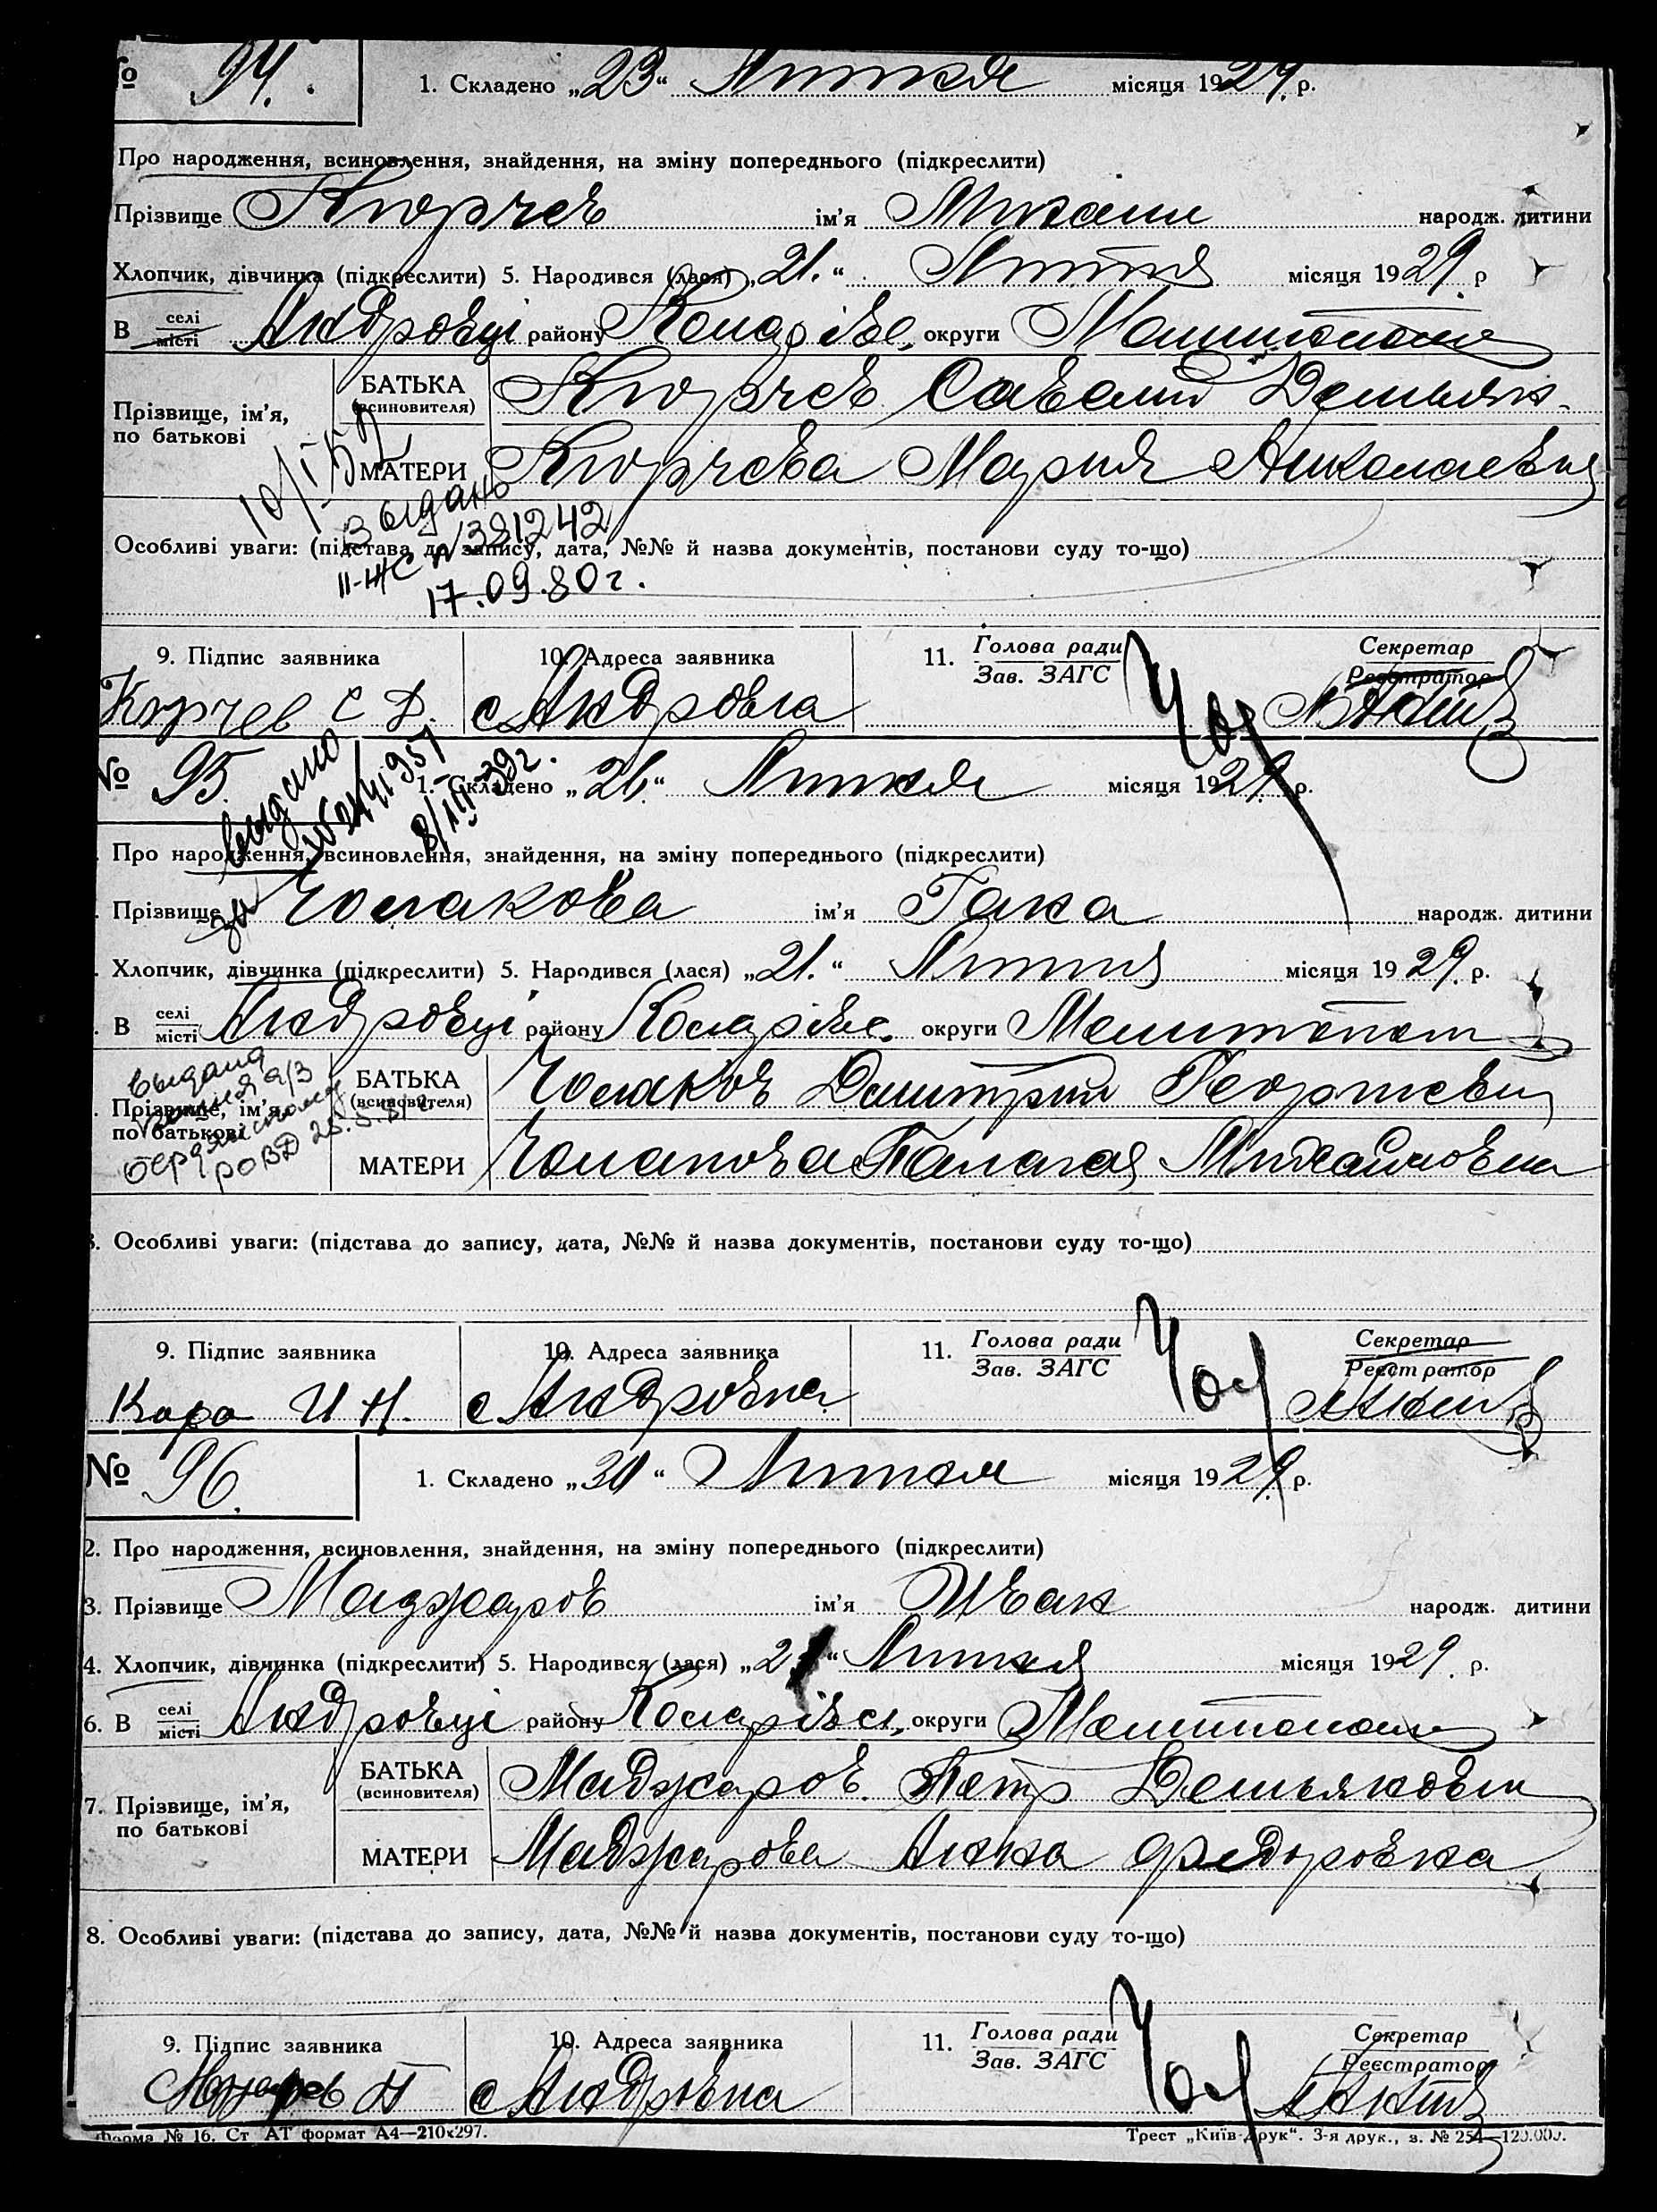 № 94. 1. Складено „23“ Липня місяця 1929. р.
Про народження, всиновлення, знайдення, на зміну попереднього (підкреслити)
Прізвище Кюрчев ім'я Михаил народж. дитини
Хлопчик, дівчинка (підкреслити) 5. Народився (лася) „21.“ Липня місяця 1929. р
В селі місті Андровці району Коларівс. округи
Прізвище, ім'я, по батькові БАТЬКА (всиновителя) Кюрчев Савелий Демьян
МАТЕРИ Кюрчева Мария Николаевна
10/I 52
Выдано
II-ЖС № 381242
17.09.80г.
Особливі уваги: (підстава до запису, дата, №№ й назва документів, постанови суду то-що)
9. Підпис заявника 10. Адреса заявника 11. Голова ради Зав. ЗАГС Секретар Реєстратор
Кюрчев С Д. с Андровка
№ 95. 1. Складено „26.“ Липня місяця 1929. р.
выдано
Про народження, всиновлення, знайдення, на зміну попереднього (підкреслити)
Прізвище Чолакова ім'я Гана народж. дитини
Хлопчик, дівчинка (підкреслити) 5. Народився (лася) „21.“ Липня місяця 1929. р.
В селі місті Андровці району Коларівс. округи Мелитополь
Прізвище, ім'я, по батькові БАТЬКА (всиновителя) Чолаков Дмитрий Георгиевич
МАТЕРИ Чолакова Палагая Михайловна
выдана
РОВД
8. Особливі уваги: (підстава до запису, дата, №№ й назва документів, постанови суду то-що)
9. Підпис заявника 10. Адреса заявника 11. Голова ради Зав. ЗАГС Секретар Реєстратор
Кара И Н. с Андровка
№ 96. 1. Складено „30“ Липня місяця 1929. р.
2. Про народження, всиновлення, знайдення, на зміну попереднього (підкреслити)
3. Прізвище Маджаров ім'я Иван народж. дитини
4. Хлопчик, дівчинка (підкреслити) 5. Народився (лася) Липня місяця 1929. р.
6. В селі місті Андровці району Коларівсь. округи Мелитополь
7. Прізвище, ім'я, по батькові БАТЬКА (всиновителя) Маджаров Петр Демьянович
МАТЕРИ Маджарова Анна Федоровна
8. Особливі уваги: (підстава до запису, дата, №№ й назва документів, постанови суду то-що)
9. Підпис заявника 10. Адреса заявника 11. Голова ради Зав. ЗАГС Секретар Реєстратор
с Андровка
Форма № 16. Ст АТ формат А4—210х297. Трест „Київ-Друк“. 3-я друк., з. № 254—120.000.